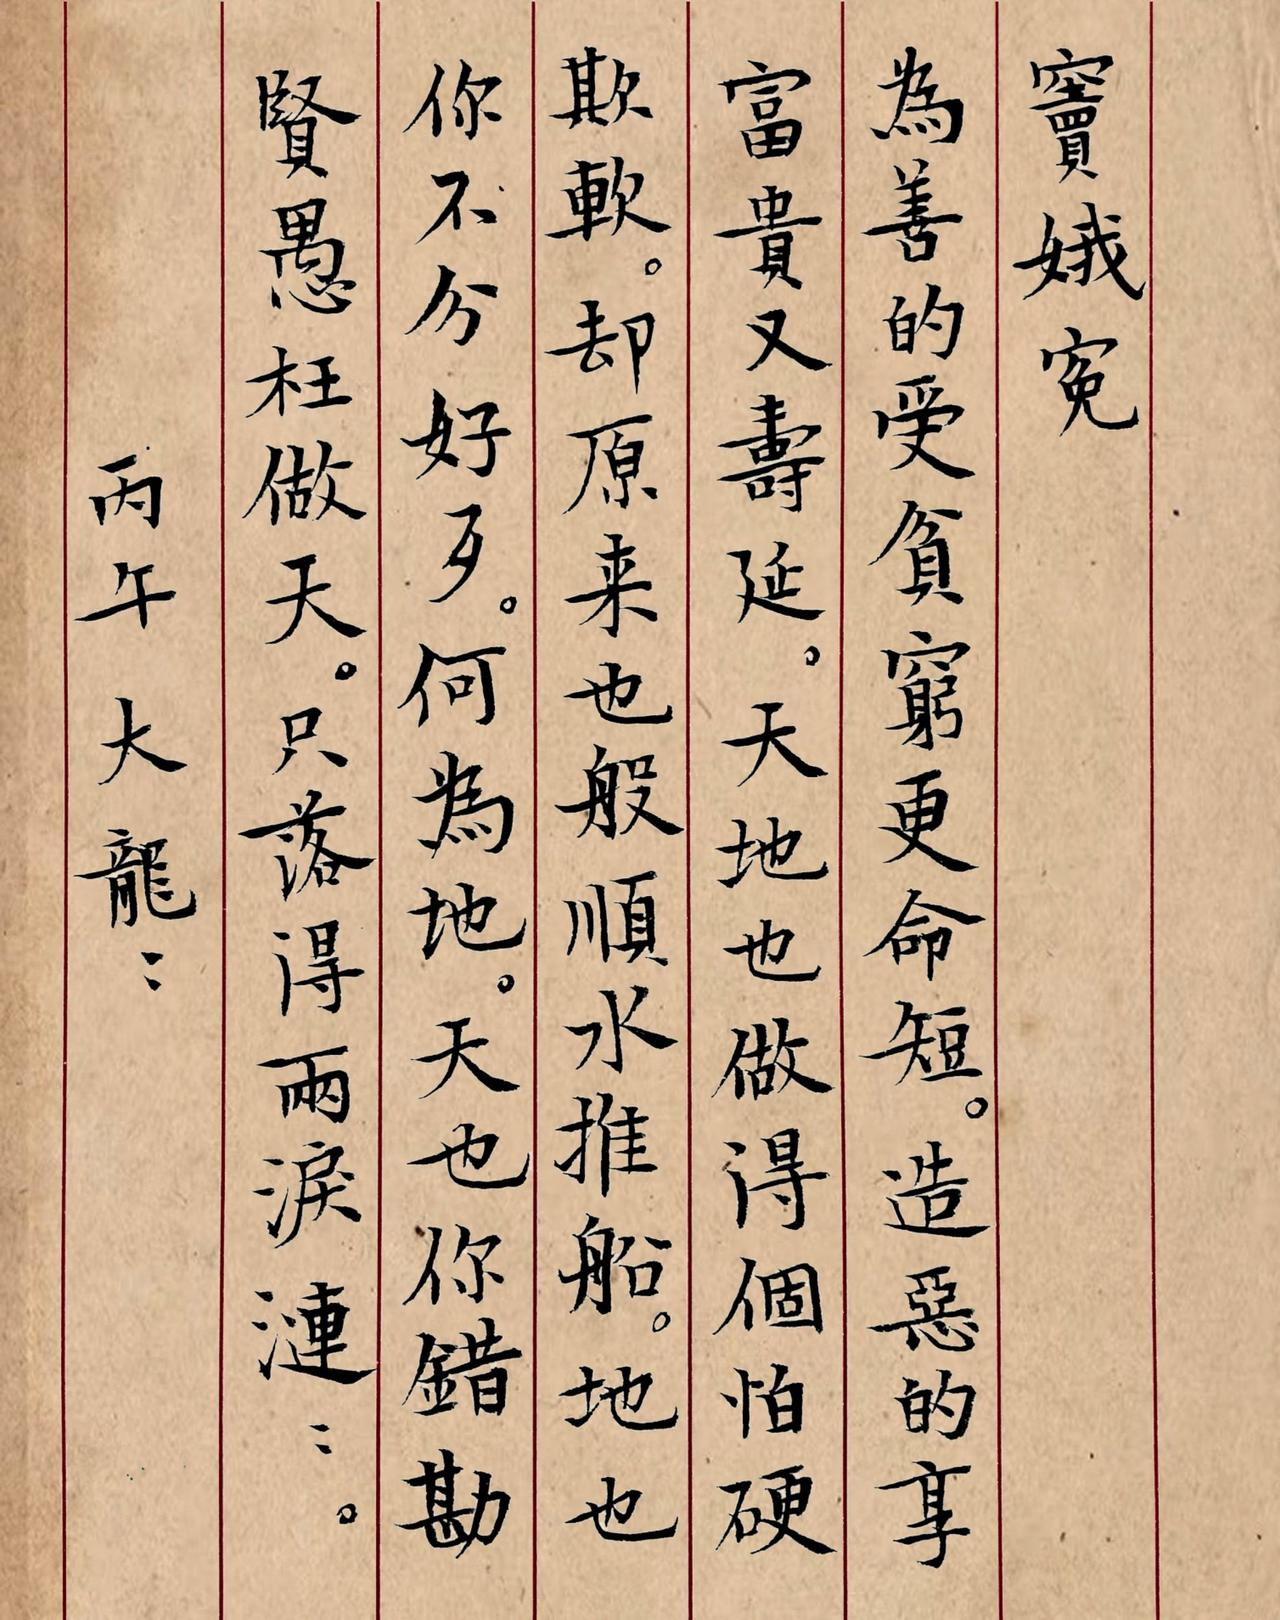 竇娥冤
為善的受貧窮更命短。造惡的享
富貴又壽延。天地也做得個怕硬
欺軟。却原来也般順水推船。地也
你不分好歹。何為地。天也你錯勘
賢愚枉做天。只落得兩淚漣：。
丙午大龍：